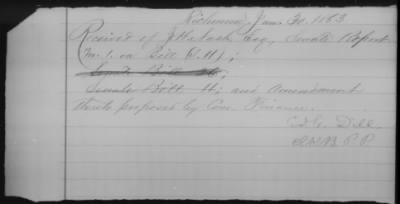 Richmond, Jan. 30. 1863
Received of J H Nash Esq, Senate Report
No. 1. on Bill (S. 11);
Senate Bill
Senate Bill 11; and Amendment
thereto proposed by Com. Finance.